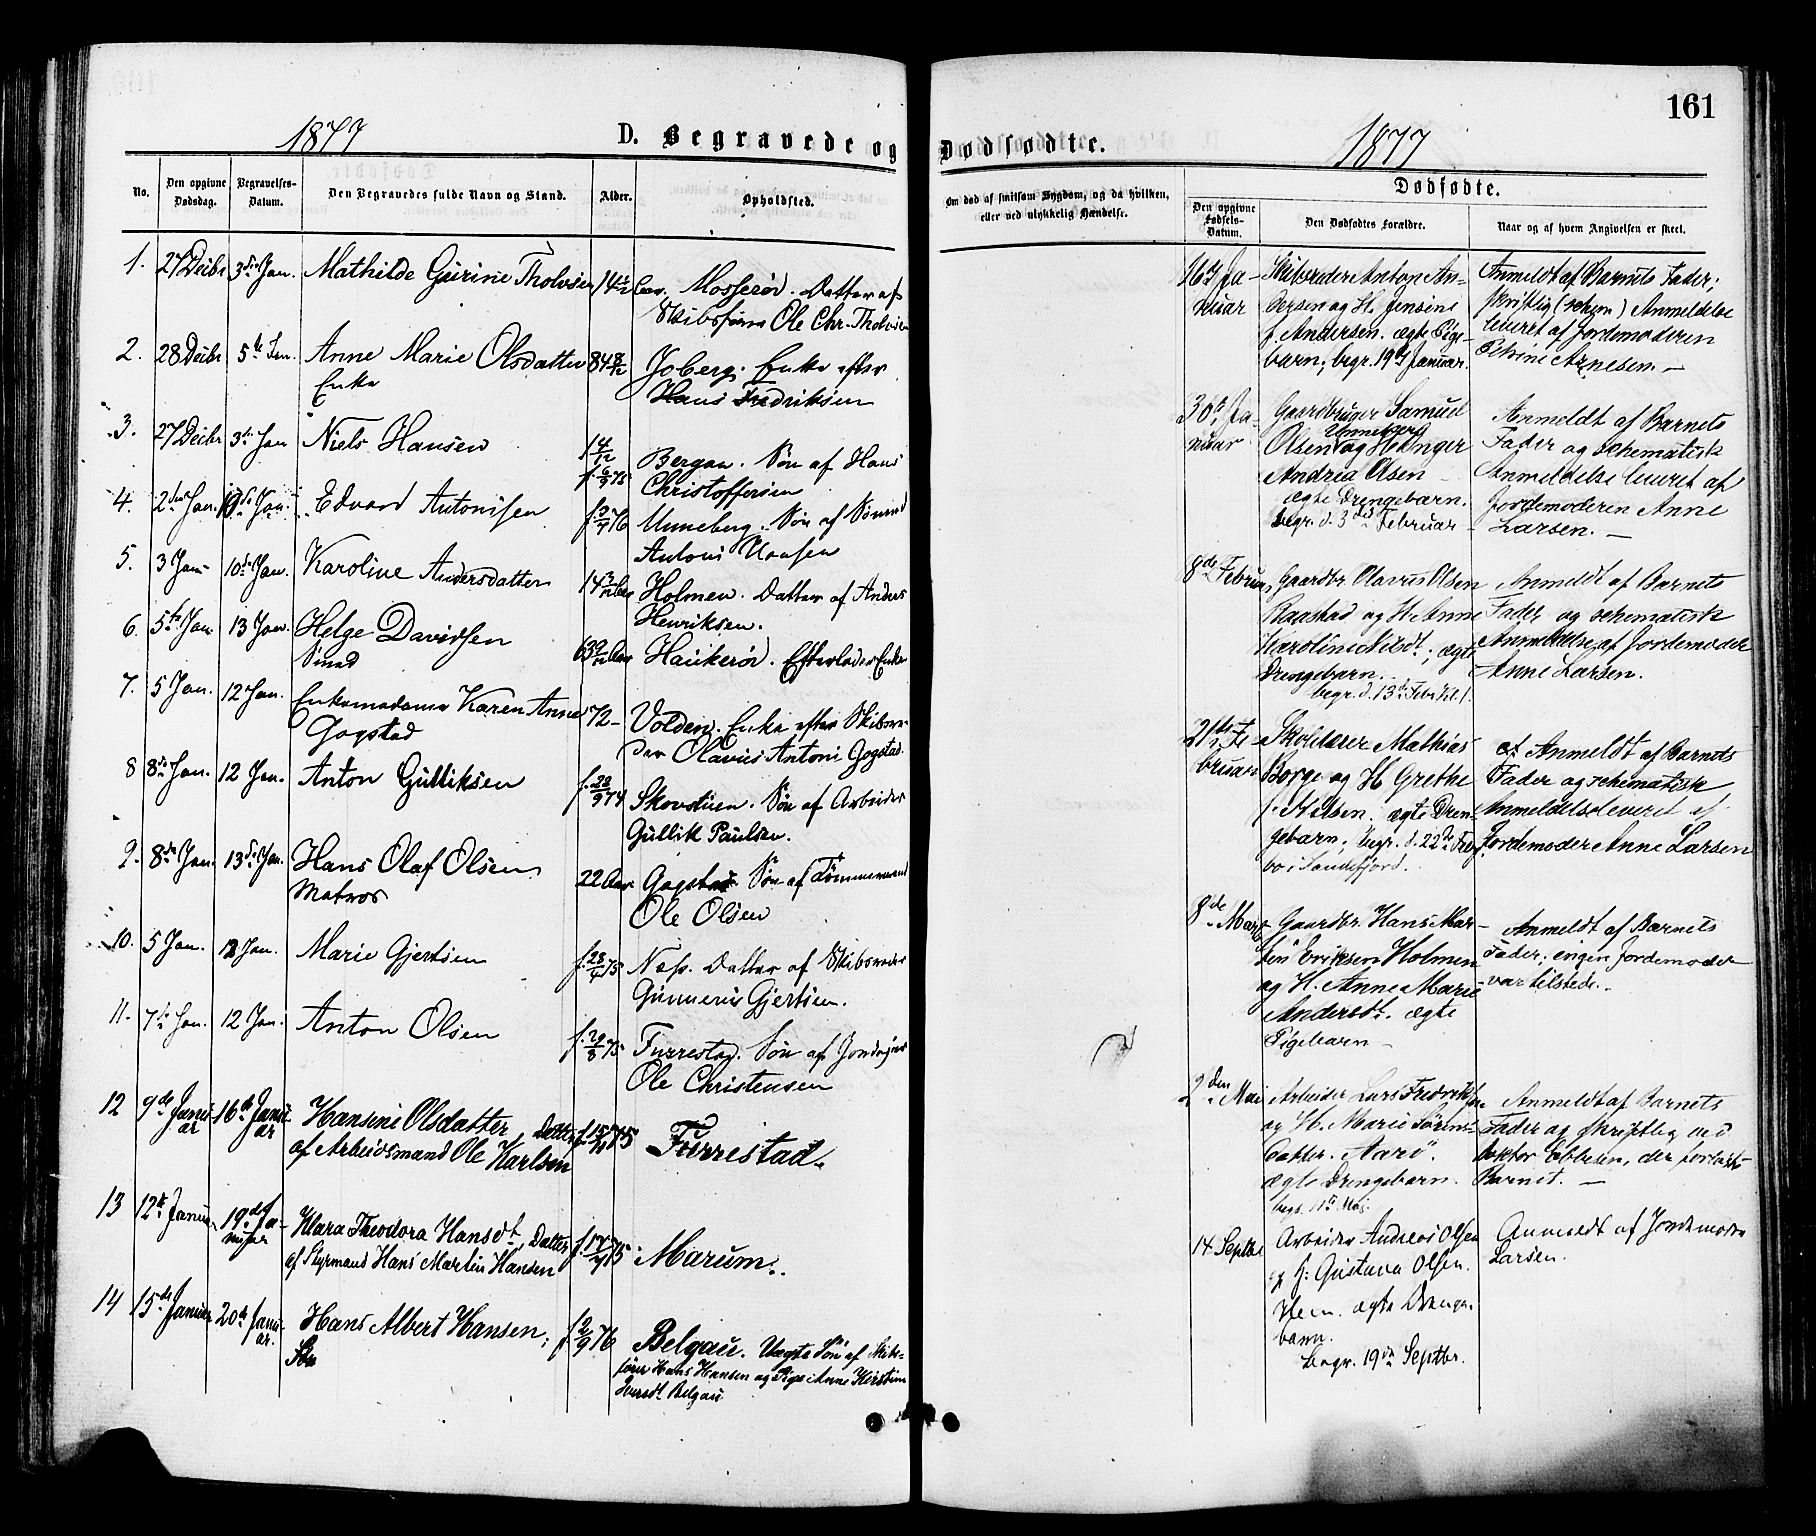 161
1877
D. Begravede og
Dødfødte.
1877
No.
Den opgivne Dødsdag.
Begravelses-Datum.
Den Begravedes fulde Navn og Stand.
Alder.
Opholdsted.
Om død af smitsom Sygdom, og da hvilken,
eller ved ulykkelig Hændelse.
Dødfødte.
Den opgivne Fødsels-Datum.
Den Dødfødtes Forældre.
Naar og af hvem Angivelsen er skeet.
1. 27 Decbr 3die Jan. Mathilde Gurine Tholvsen
Moserød. Datter af
Skibsfører Ole Chr. Tholvsen
2. 28 Decbr 5te Jan. Anne Marie Olsdatter 84 8/12 Joberg. Enke efter
Enke
Hans Fredriksen
3. 27 Decbr 3die Jan Niels Hansen 1 4/12
Bergan. Søn af Hans
Christoffersen
4. 2den Jan. Jan. Edvard Antonisen
Unneberg. Søn af Sømand
Antoni Hansen
5. 3 Jan. 10de Jan. Karoline Andersdatter
Holmen. Datter af Anders
Henriksen.
6. 5te Jan. 13 Jan. Helge Davidsen
Haukerød. Efterlader Enke
7. 5 Jan. 12 Jan. Enkemadame Karen Anne 72
Gogstad
Volden. Enke efter Skibsre-
der Olavus Antoni Gogstad.
8 8de Jan. 12 Jan. Anton Gulliksen f. 28/9 74
Skovstuen. Søn af Arbeider
Gullik Paulsen.
9. 8de Jan. 13de Jan. Hans Olaf Olsen 22 Aar Gogstad Søn af Tømmermand
Matros
Ole Olsen
10. 5 Jan. 12 Jan. Marie Gjertsen
Nes. Datter af Skibsreder
Gunnerius Gjertsen.
11. 7de Jan. 12 Jan. Anton Olsen
Furrestad. Søn af Jordeier
Ole Christensen
12 9de Janu-
ar 16de Janu-
ar Hansine Olsdatter, Datter
af Arbeidsmand Ole Karlsen
Furrestad.
13 12te Januar 19de Ja-
nuar Klara Theodora Hansdt, Datter
af Styrmand Hans Martin Hansen
Marum.
14 15de Januar 20de Janu-
ar. Hans Albert Hansen; f. 2/9 76
Søn
Belgau. Uægte Søn af Skibs-
fører Hans Hansen og Pige Anne Kirstine
Iversdt Belgau
16de Ja-
nuar
Skibsreder Anton An-
dersen og H. Jensine
f. Andersen. ægte Pige-
barn; begr. 19de Januar.
Anmeldt af Barnets Fader;
skriftlig (schem) Anmeldelse
leveret af Jordemoderen
Petrine Arnesen. —
30te Ja-
nuar
Gaardbruger Samuel
Olsen Unneberg og H. Inger
Andrea Olsen
ægte Drengebarn.
begr. d. 3die Februar
Anmeldt af Barnets
Fader og schematisk
Anmeldelse leveret af
Jordemoderen Anne
Larsen. —
8de Februar
Gaardbr. Olavus Olsen
Raastad og H. Anne
Karoline Nilsdt., ægte
Drengebarn.
begr. d. 13de
Anmeldt af Barnets
Fader og schematisk
Anmeldelse af Jordemoder
Anne Larsen.
21de Fe-
bruar
Skolelærer Mathias
Borge og H. Grethe
f. Nilsen. ægte Dren-
gebarn, begr. d. 22de Feb.
bo i Sandefjord.
Anmeldt af Barnets
Fader og schematisk
Anmeldelse leveret af
Jordemoder Anne Larsen
8de Marts
Gaardbr. Hans Mar-
tin Eriksen Holmen
og H. Anne Marie
Andersdt. ægte
Pigebarn
Anmeldt af Barnets
Fader; ingen Jordemoder
var tilstede.
2den Mai
Arbeider Lars Fredriksen
og H. Marie Sørens-
datter. Aarø.
ægte Drengebarn.
begr. 11te Mai
Anmeldt af Barnets
Fader og skriftlig ved
Doktor Ebbesen, der forløste
Barnet. —
14 Septbr
Arbeider Andreas Olsen
og H. Gustava Olsen.
Hem. ægte Drenge-
barn.
Begr. 19de Septbr.
Anmeldt af Jordemoder
Larsen.